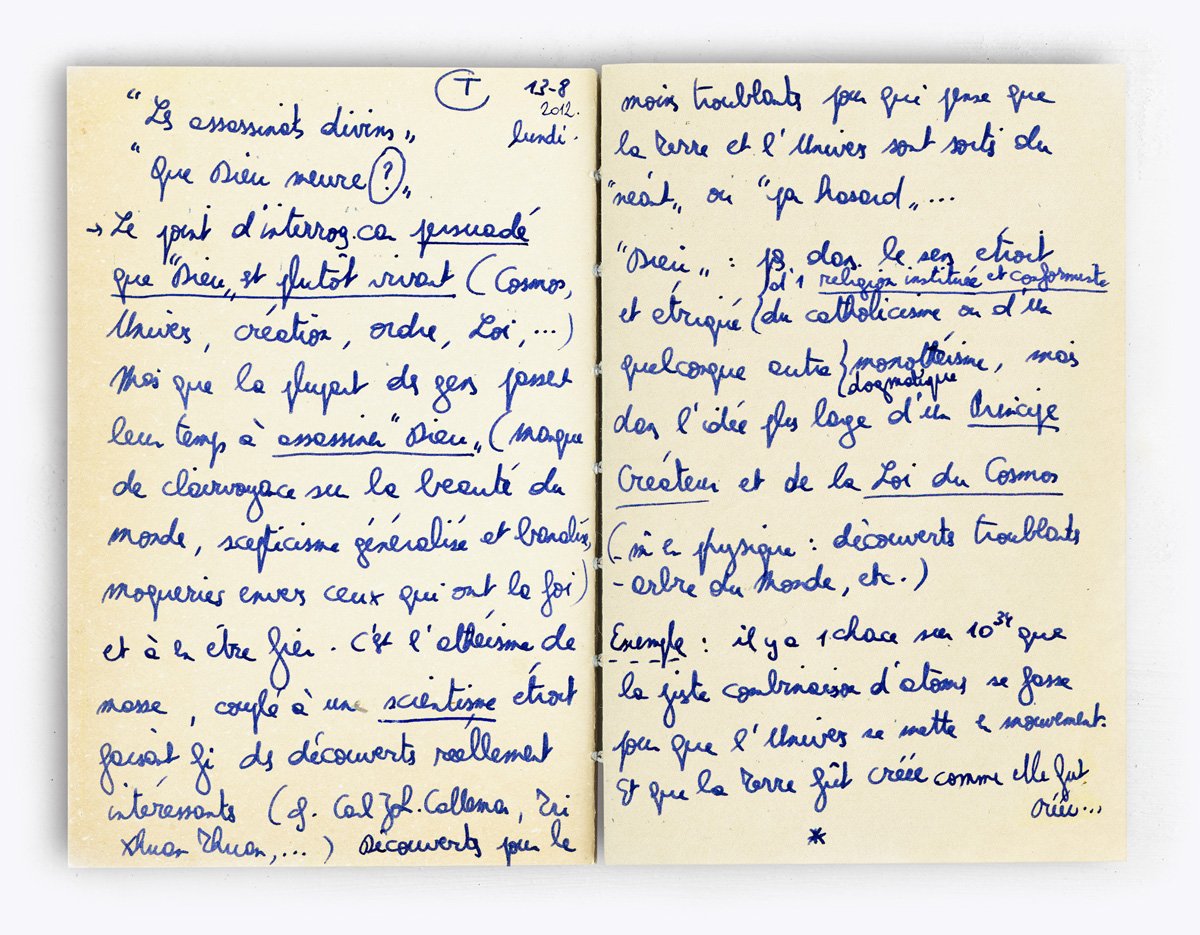 T 13-8
2012.
lundi.
"Les assassinats divins"
"Que Dieu meure ?"
→ Le point d'interrog. car persuadé
que "Dieu" est plutôt vivant (Cosmos,
Univers, création, ordre, Loi, ...)
Mais que la plupart des gens passent
leur temps à assassiner "Dieu" (manque
de clairvoyance sur la beauté du
monde, scepticisme généralisé et banalisé,
moqueries envers ceux qui ont la foi)
et à en être fier. C'est l'athéisme de
masse, couplé à une scientisme étroit
faisant fi des découvertes réellement
intéressantes (cf. Carl Joh. Calleman, Tri
Xhuan Thuan, ...) Découvertes pour le
moins troublantes pour qui pense que
la Terre et l'Univers sont sortis du
"néant" ou "par hasard" ...
"Dieu" : pas dans le sens étroit
d'1 religion instituée et conformiste
et étriqué (du catholicisme ou d'un
quelconque autre monothéisme, mais
dogmatique
dans l'idée plus large d'un Principe
Créateur et de la Loi du Cosmos
(- en physique : découvertes troublantes
- arbre du Monde, etc.)
Exemple : il y a 1 chance sur 10³⁴ que
la juste combinaison d'atomes se fasse
pour que l'Univers se mette en mouvement.
Et que la Terre fût créée comme elle fut
créée...
*